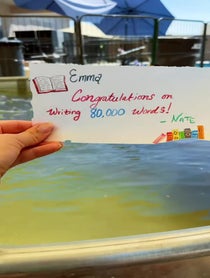 Emma
Congratulations on
Writing 80,000 words!
- NATE